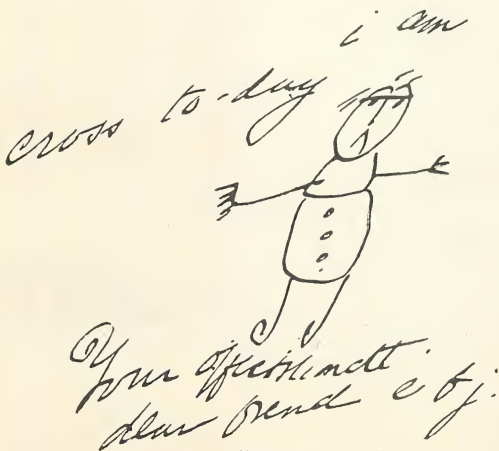 i am
cross to-day
Your affectshnatt
dear frend e b j.